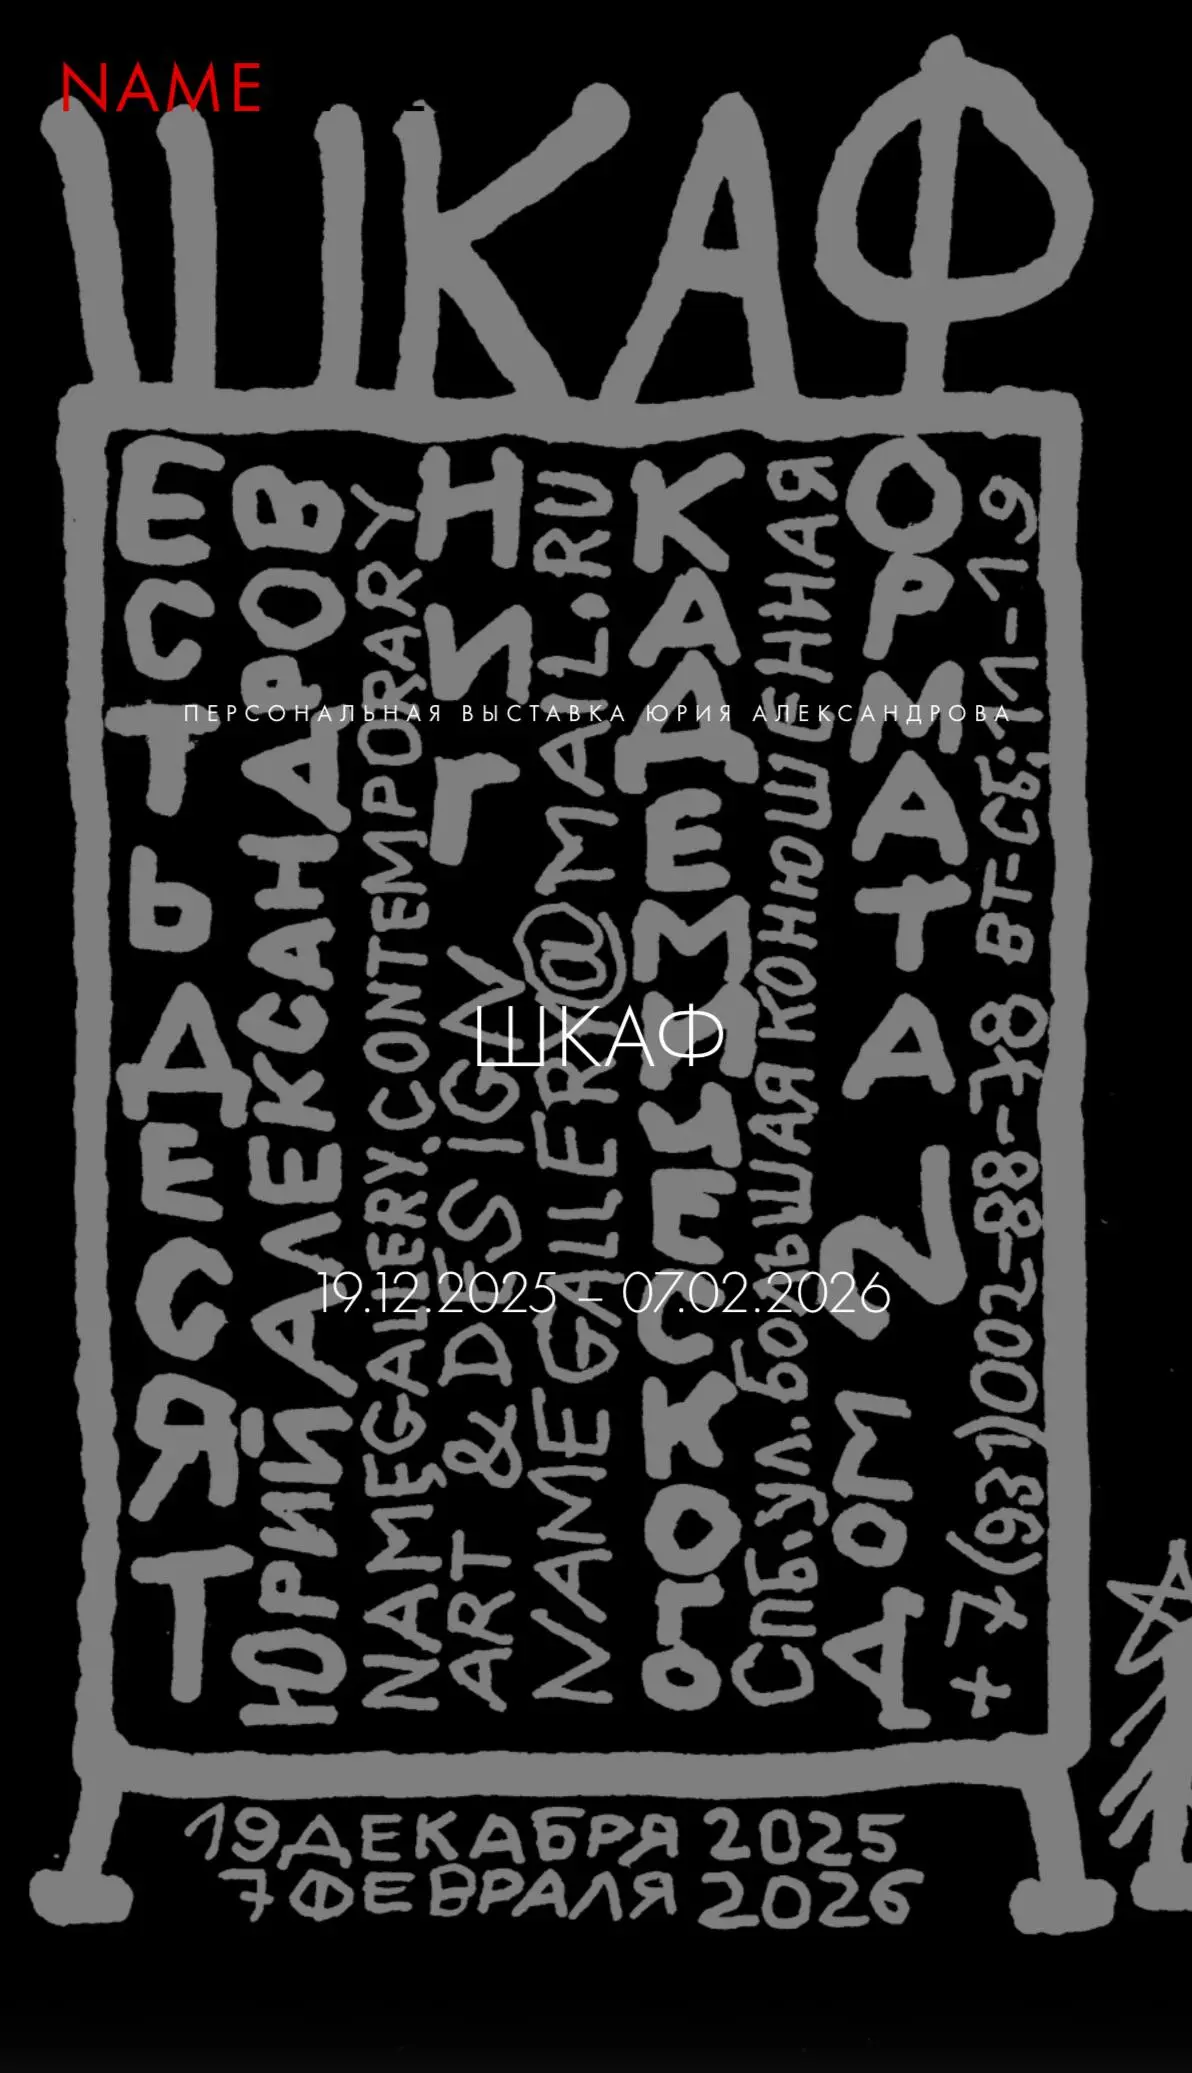 NAME
ШКАФ
ЕСТЬДЕСЯТ
ЮРИЙ АЛЕКСАНДРОВ
NAMEGALLERY.CONTEMPORARY
НИГ
ART & DESIGN
NAMEGALLERY@MAIL.RU
КАДЕМИЧЕСКОГО
СПБ.УЛ.БОЛЬШАЯ КОНЮШЕННАЯ
ОРМАТА
ДОМ 2
+7(931)002-88-78 ВТ-СБ:11-19
ПЕРСОНАЛЬНАЯ ВЫСТАВКА ЮРИЯ АЛЕКСАНДРОВА
ШКАФ
19.12.2025 – 07.02.2026
19 ДЕКАБРЯ 2025
7 ФЕВРАЛЯ 2026